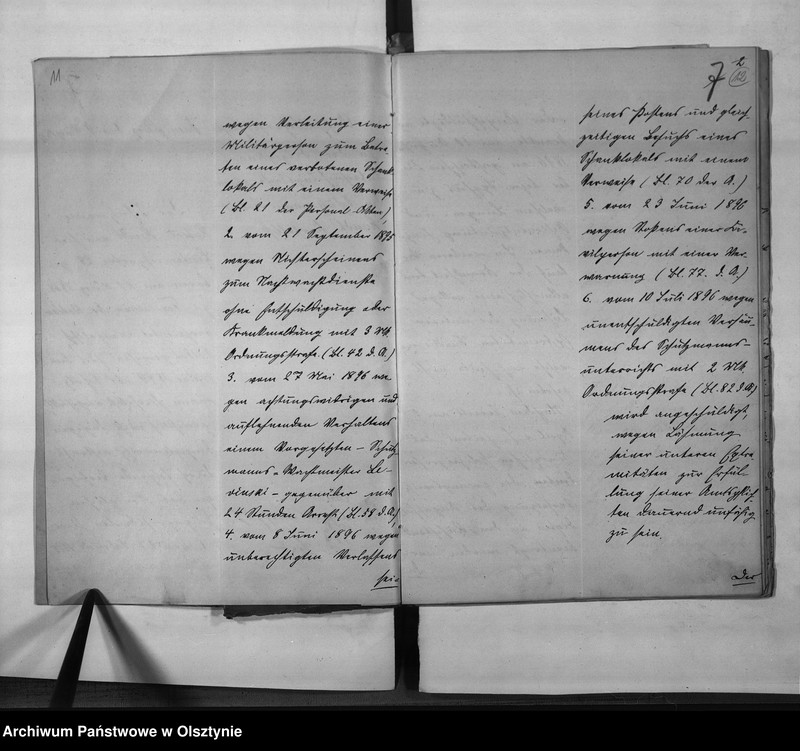 11
wegen Verleitung einer
Militärperson zum Betre-
ten eines verbotenen Schank
lokals mit einem Verweise
(Bl. 21 der Personal Akten)
2. vom 21 September 1895
wegen Nichterscheinens
zum Nachtwachtdienste
ohne Entschuldigung oder
Krankmeldung mit 3 Mk.
Ordnungsstrafe. (Bl. 42 d. A.)
3. vom 27 Mai 1896 we
gen achtungswidrigen und
auflehnenden Verhaltens
einem Vorgesetzten - Schutz
manns-Wachtmeister Le-
vinski - gegenüber mit
24 Stunden Arrest (Bl. 58 d. A.)
4. vom 8 Juni 1896 wegen
unberechtigten Verlassens
sei-
7
2
12
seines Postens und gleich-
zeitigen Besuchs eines
Schanklokals mit einem
Verweise (Bl. 70 der A.)
5. vom 23 Juni 1896
wegen Stoßens einer Ci-
vilperson mit einer Ver-
warnung (Bl. 77. d. A.)
6. vom 10 Juli 1896 wegen
unentschuldigten Versäu-
mens des Schutzmanns-
unterrichts mit 2 Mk.
Ordnungsstrafe (Bl. 82 d. A.)
wird angeschuldigt,
wegen Lähmung
seiner unteren Extre
mitäten zur Erfül-
lung seiner Amtspflich-
ten dauernd unfähig
zu sein.
Der
Archiwum Państwowe w Olsztynie